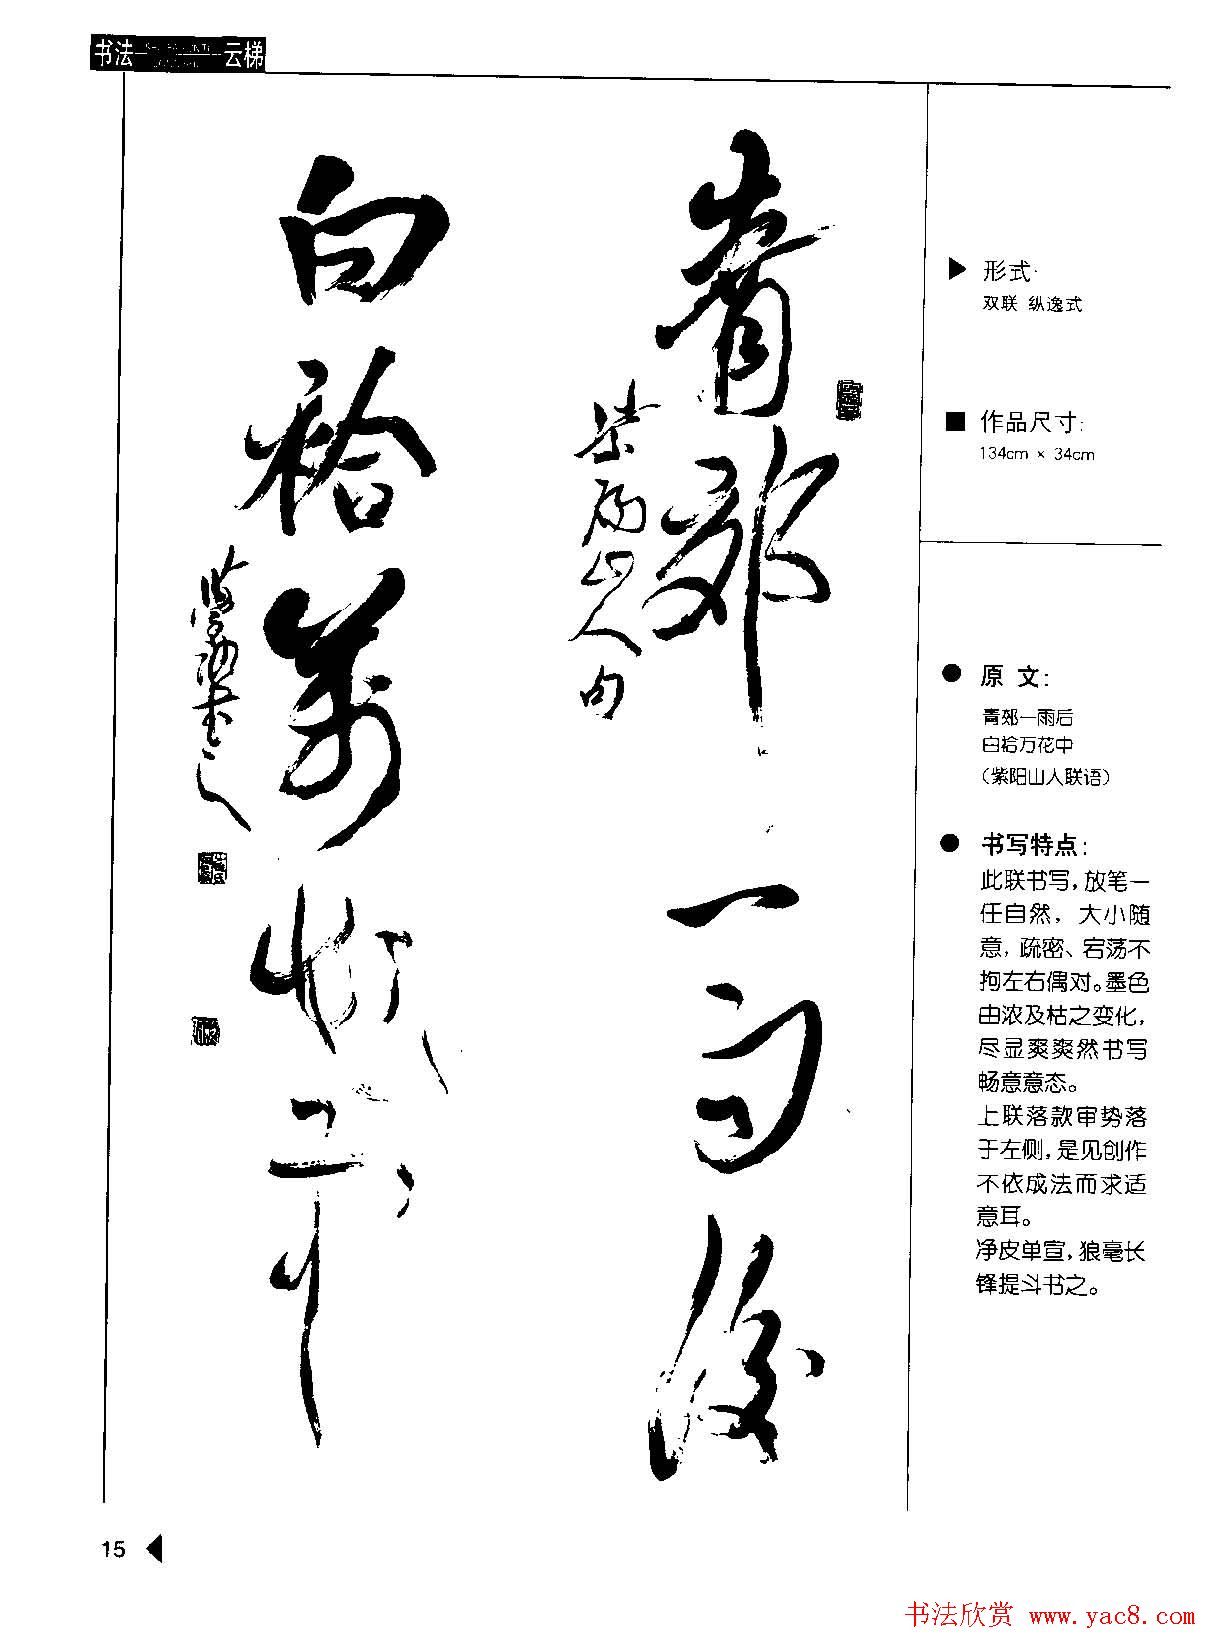 书法
云梯
青郊一雨後
紫陽山人句
白袷萬花中
形式
双联 纵逸式
作品尺寸:
134cm × 34cm
原 文:
青郊一雨后
白袷万花中
(紫阳山人联语)
书写特点:
此联书写,放笔一
任自然, 大小随
意,疏密、宕荡不
拘左右偶对。墨色
由浓及枯之变化,
尽显爽爽然书写
畅意意态。
上联落款审势落
于左侧,是见创作
不依成法而求适
意耳。
净皮单宣,狼毫长
锋提斗书之。
15
书法欣赏 www.yac8.com